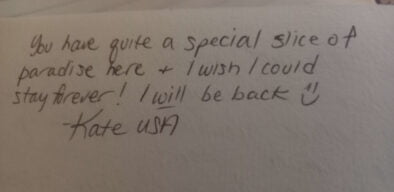 You have quite a special slice of
paradise here + I wish I could
stay forever! I will be back ü
-Kate USA